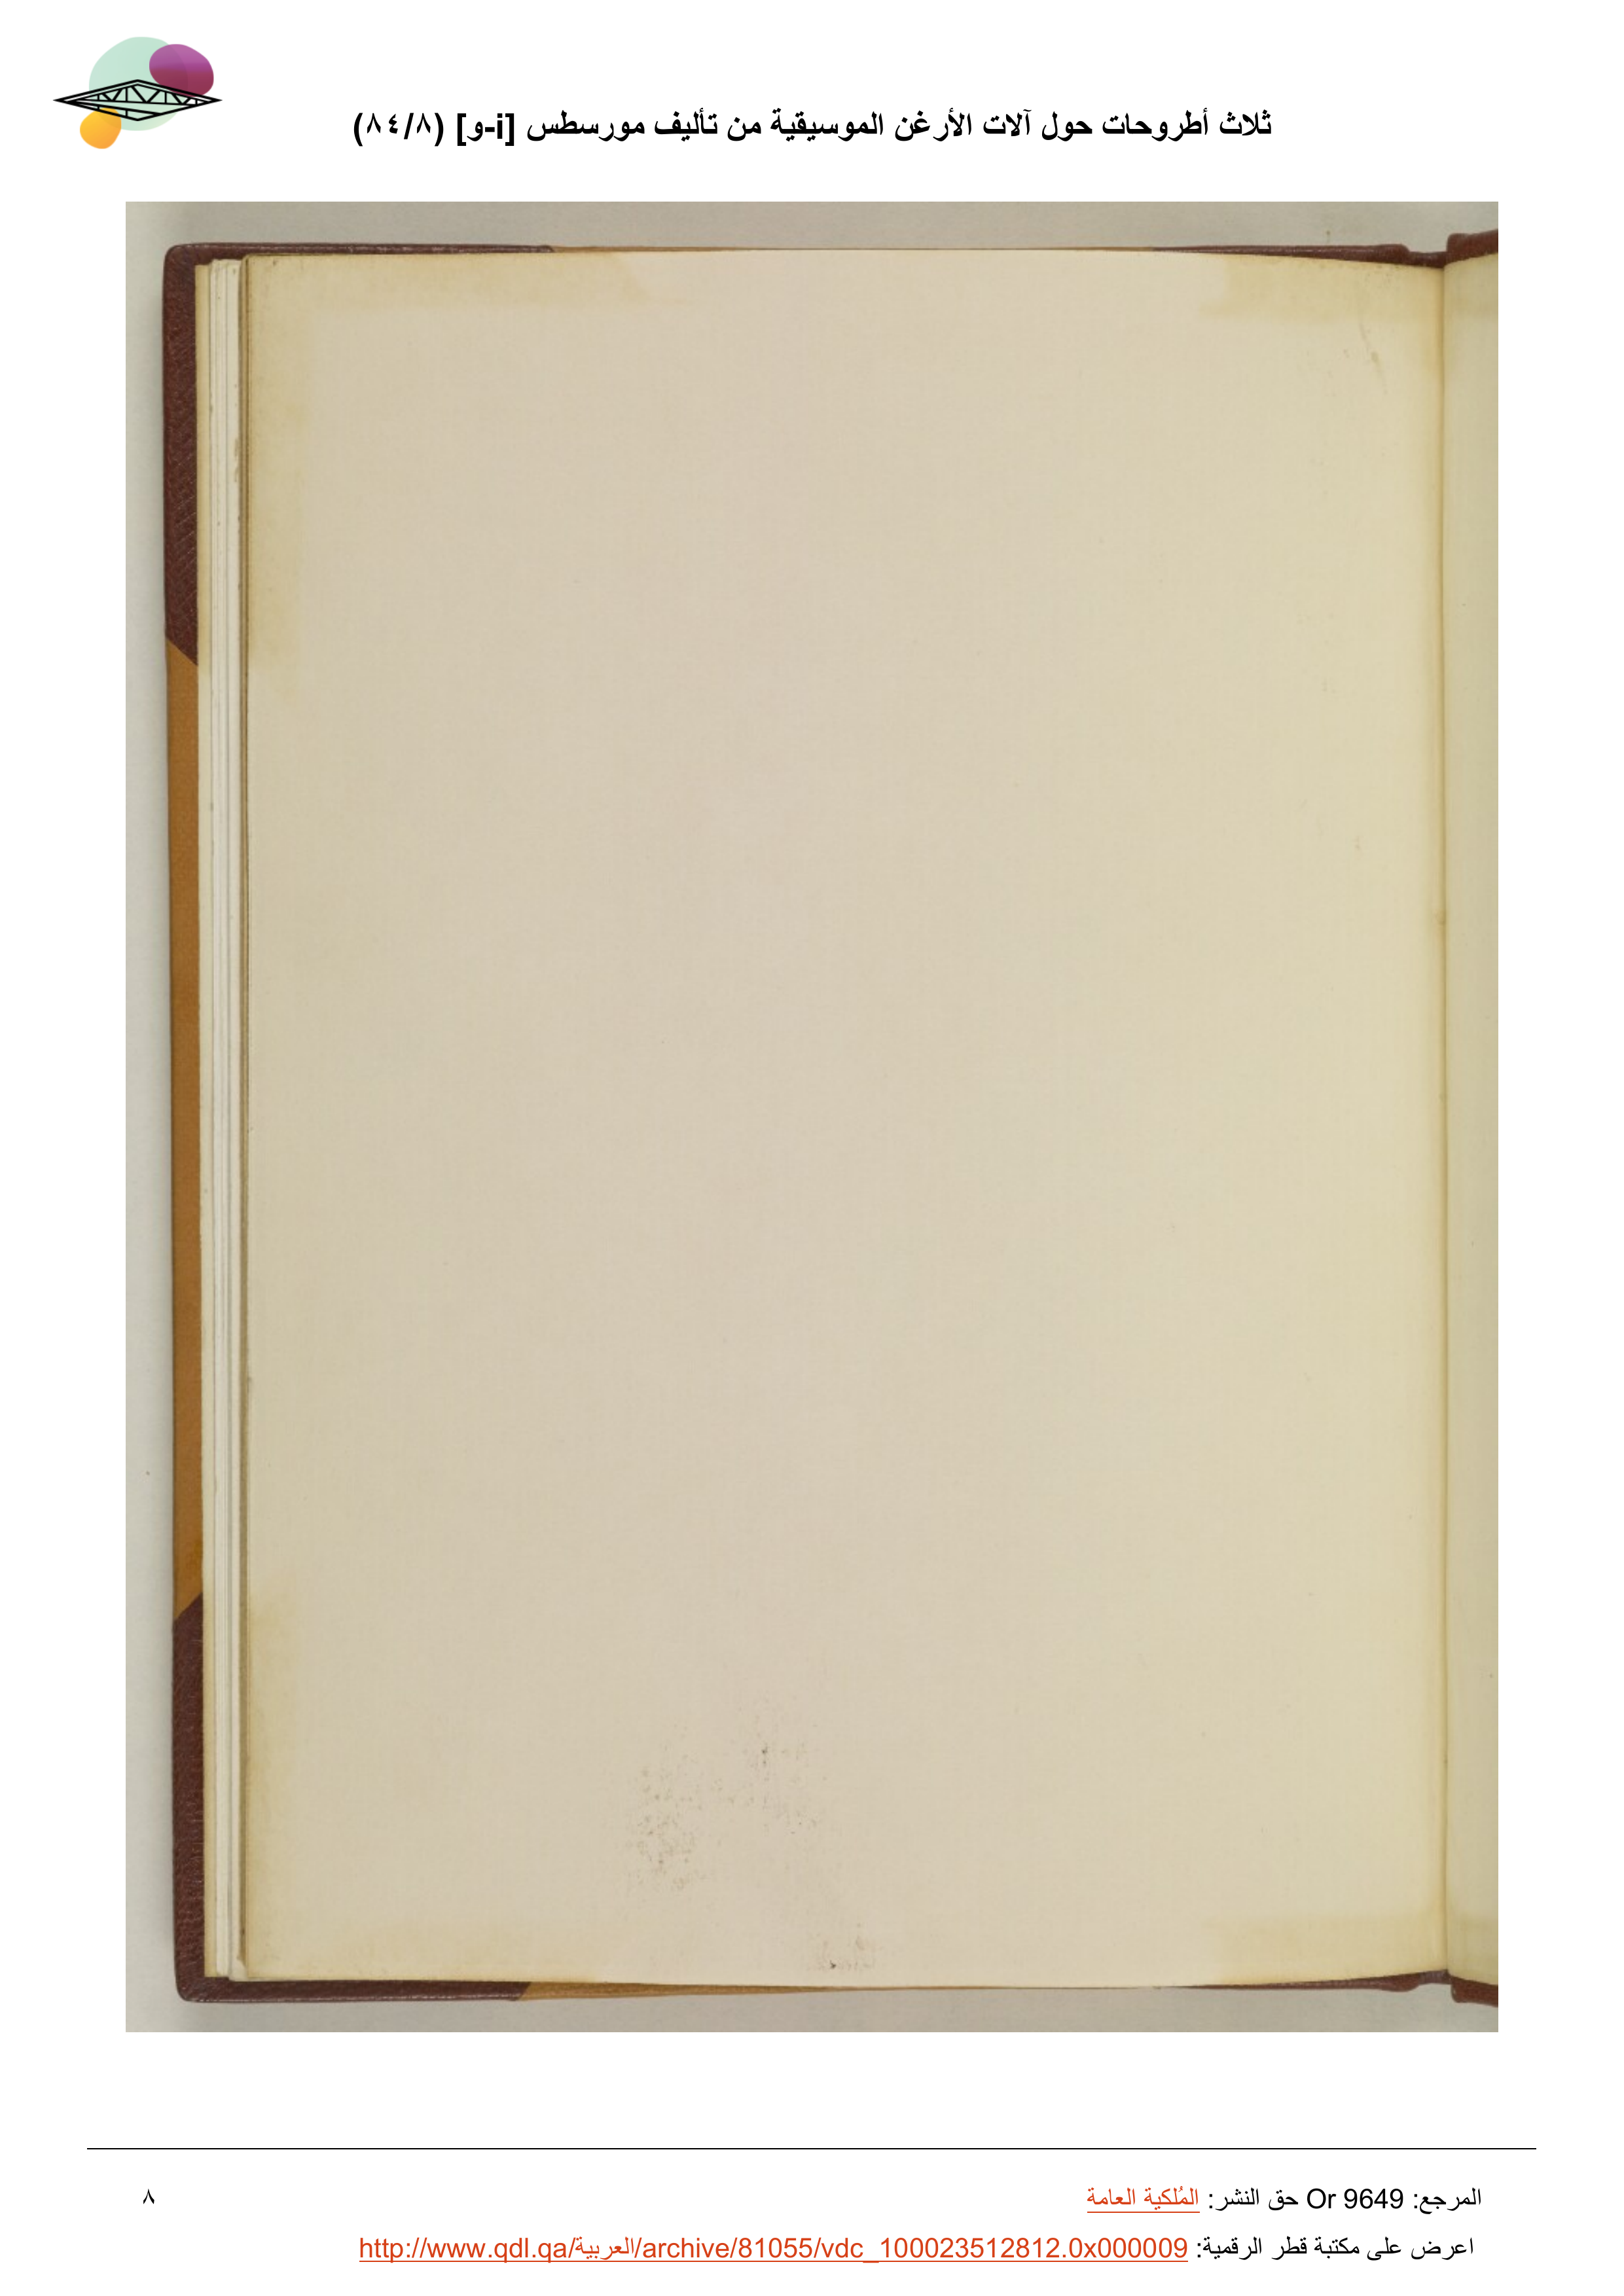 ثلاث أطروحات حول آلات الأرغن الموسيقية من تأليف مورسطس [i-و] (٨٤/٨)
المرجع: Or 9649 حق النشر: المُلكية العامة
٨
اعرض على مكتبة قطر الرقمية: http://www.qdl.qa/العربية/archive/81055/vdc_100023512812.0x000009